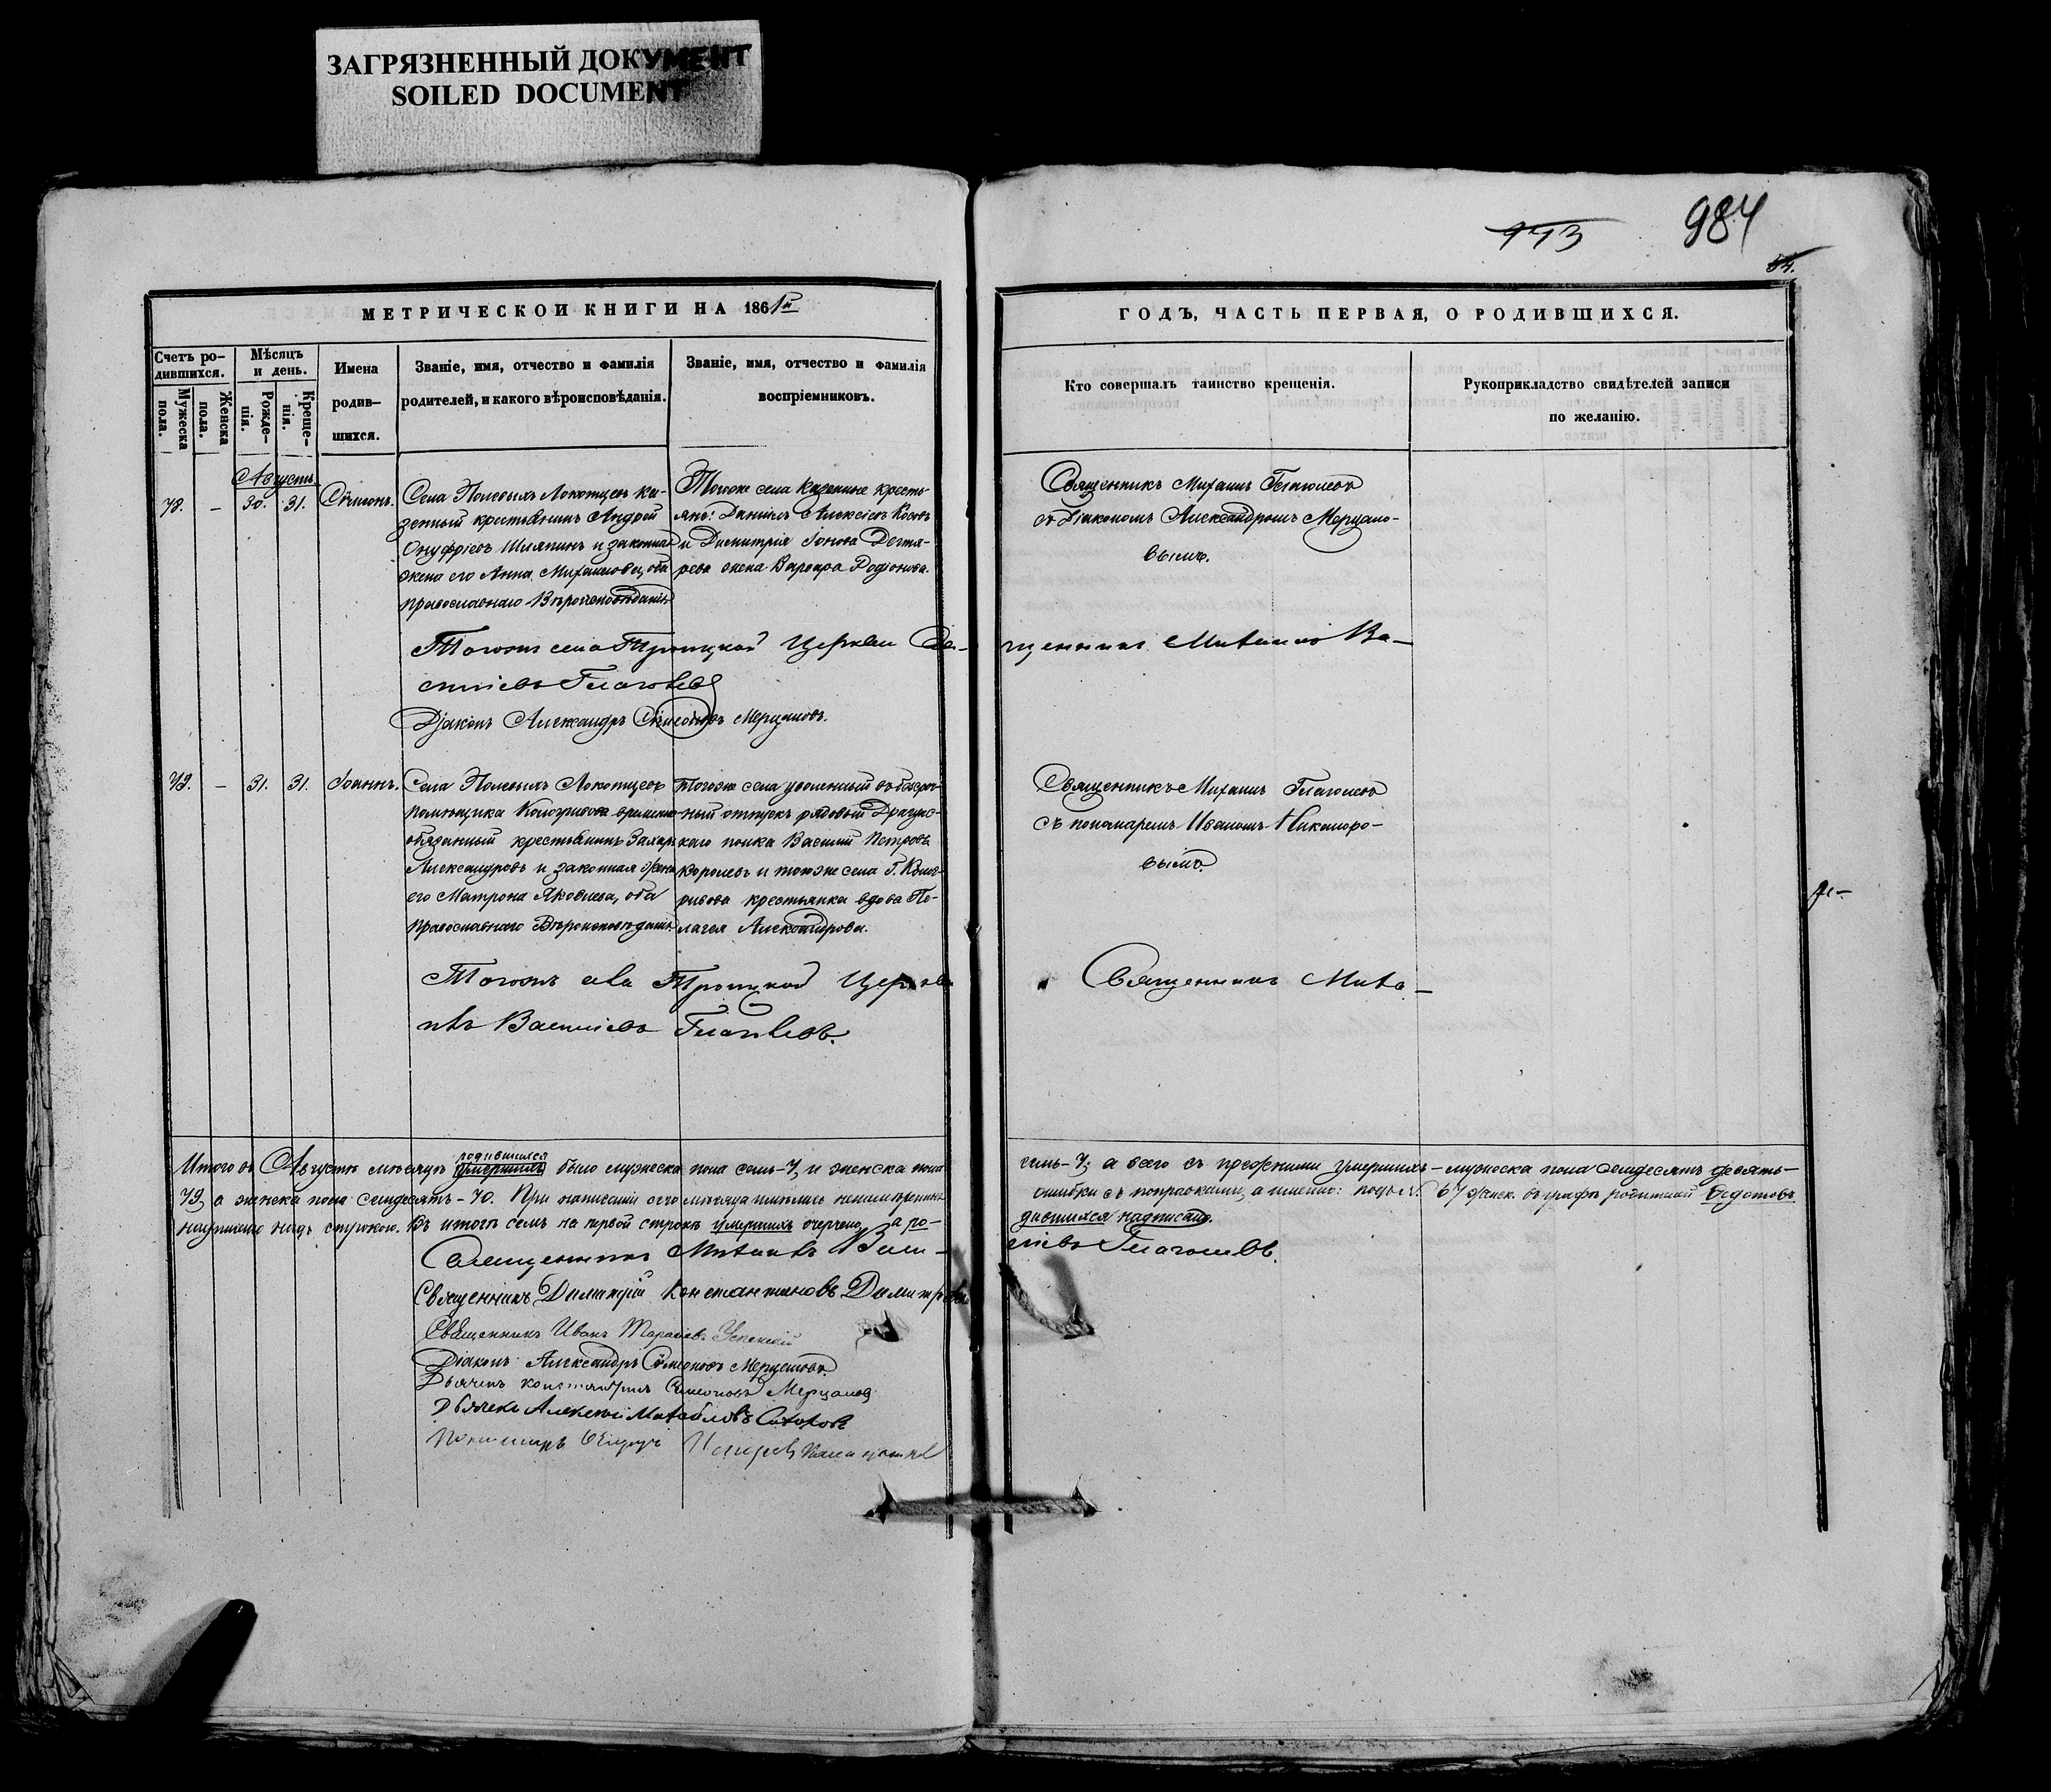 ЗАГРЯЗНЕННЫЙ ДОКУМЕНТ
SOILED DOCUMENT
113
984
54.
МЕТРИЧЕСКОЙ КНИГИ НА 1861й
Счетъ ро-
дившихся.
Мужеска пола.
Женска пола.
Мѣсяцъ
и день.
Рожде-
нія.
Креще-
нія.
Имена
родив-
шихся.
Званіе, имя, отчество и фамилія
родителей, и какого вѣроисповѣданія.
Званіе, имя, отчество и фамилія
воспріемниковъ.
ГОДЪ, ЧАСТЬ ПЕРВАЯ, О РОДИВШИХСЯ.
Кто совершалъ таинство крещенія.
Рукоприкладство свидѣтелей записи
по желанію.
Августъ
78. – 30. 31. Сѵмеонъ.
Села Полевыхъ Локотцевъ ка-
зенный крестьянинъ Андрей
Онуфріевъ Шляпинъ и законная
жена его Анна Михайлова, оба
православнаго Вѣроисповѣданія
Тогоже села казенные кресть-
янъ: Даніилъ Алексіевъ
и Димитрія Іонова Дегтя-
рева жена Варвара Родіонова.
Священникъ Михаилъ Глаголевъ
съ Діакономъ Александромъ Мерцало-
вымъ.
Тогожъ села Троицкой Церкви Свя-
щенникъ Михаилъ Ва-
силіевъ Глаголевъ
Діаконъ Александръ Сѵмеоновъ Мерцаловъ.
79. – 31. 31. Іоаннъ.
Села Полевыхъ Локотцевъ
помѣщика Кологривова временно
обязанный крестьянинъ Захаръ
Александровъ и законная жена
его Матрона Яковлева, оба
православнаго Вѣроисповѣданія
Тогоже села уволенный въ безсроч-
ный отпускъ рядовый Драгунс-
каго полка Василій Петровъ
Королевъ и тогоже села Г. Колог-
ривова крестьянка вдова Пе-
лагея Александрова.
Священникъ Михаилъ Глаголевъ
съ пономаремъ Иваномъ Никаноро-
вымъ.
Тогожъ села Троицкой Церкви
Священникъ Миха-
илъ Василіевъ Глаголевъ.
Итого въ Августѣ мѣсяцѣ умершихъ было мужеска пола семь–7, и женска пола
родившихся
семь–7; а всего съ прежними умершихъ – мужеска пола семдесятъ девять–
79, а женска пола семдесятъ–70. При написаніи сего мѣсяца
ошибки съ поправками, а именно: подъ N. 67 женск. въ графѣ родителей Ѳедотовъ
написано надъ строкою. Въ итогѣ семъ на первой строкѣ умершихъ очерчено, а ро-
дившихся надписано.
Священникъ Михаилъ Васи-
ліевъ Глаголевъ.
Священникъ Димитрій Константиновъ
Священникъ Иванъ Тарасіевъ Успенскій
Діаконъ Александръ Сѵмеоновъ Мерцаловъ.
Дьячекъ Константинъ Симеоновъ Мерцаловъ
Дьячекъ Алексѣй Михайловъ
Пономарь